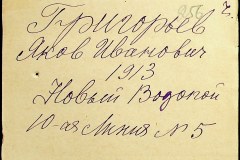 Григорьев
Яков Иванович
1913
Новый Водопой
10-ая Линия N 5